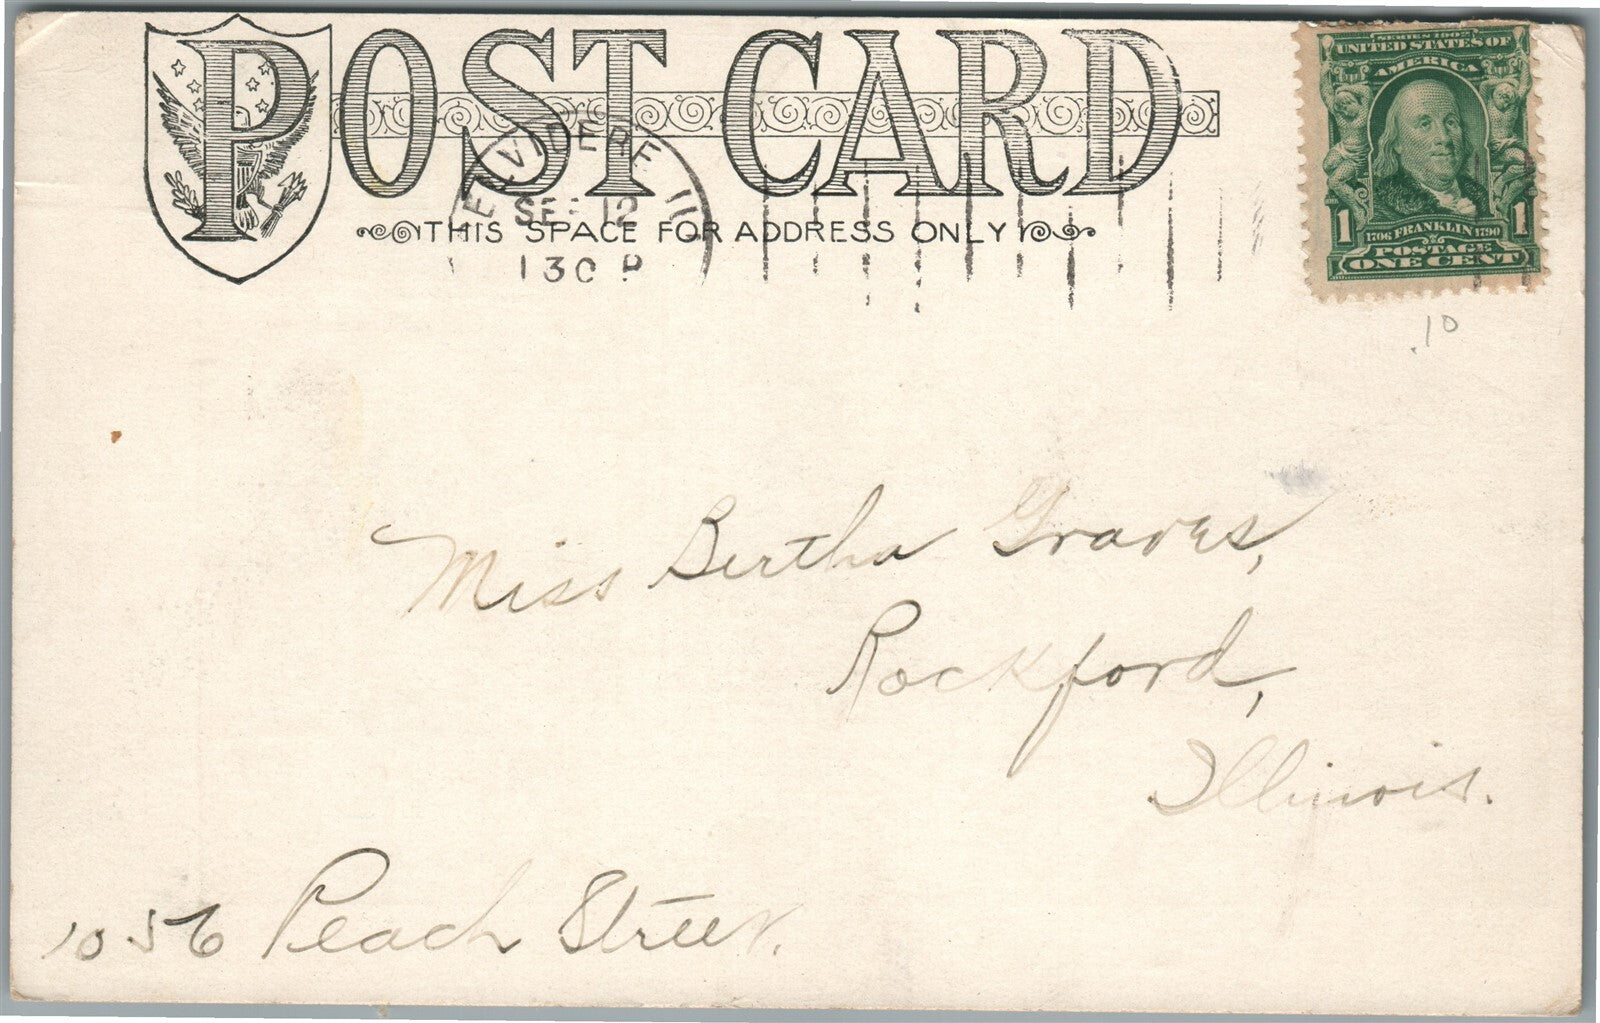 POST CARD
THIS SPACE FOR ADDRESS ONLY
BELVIDERE ILL
SEP 12
130 P
SERIES 1902
UNITED STATES OF
AMERICA
1 1706 FRANKLIN 1790 1
POSTAGE
ONE CENT
.10
Miss Bertha Graves,
Rockford,
Illinois.
1056 Peach Street.